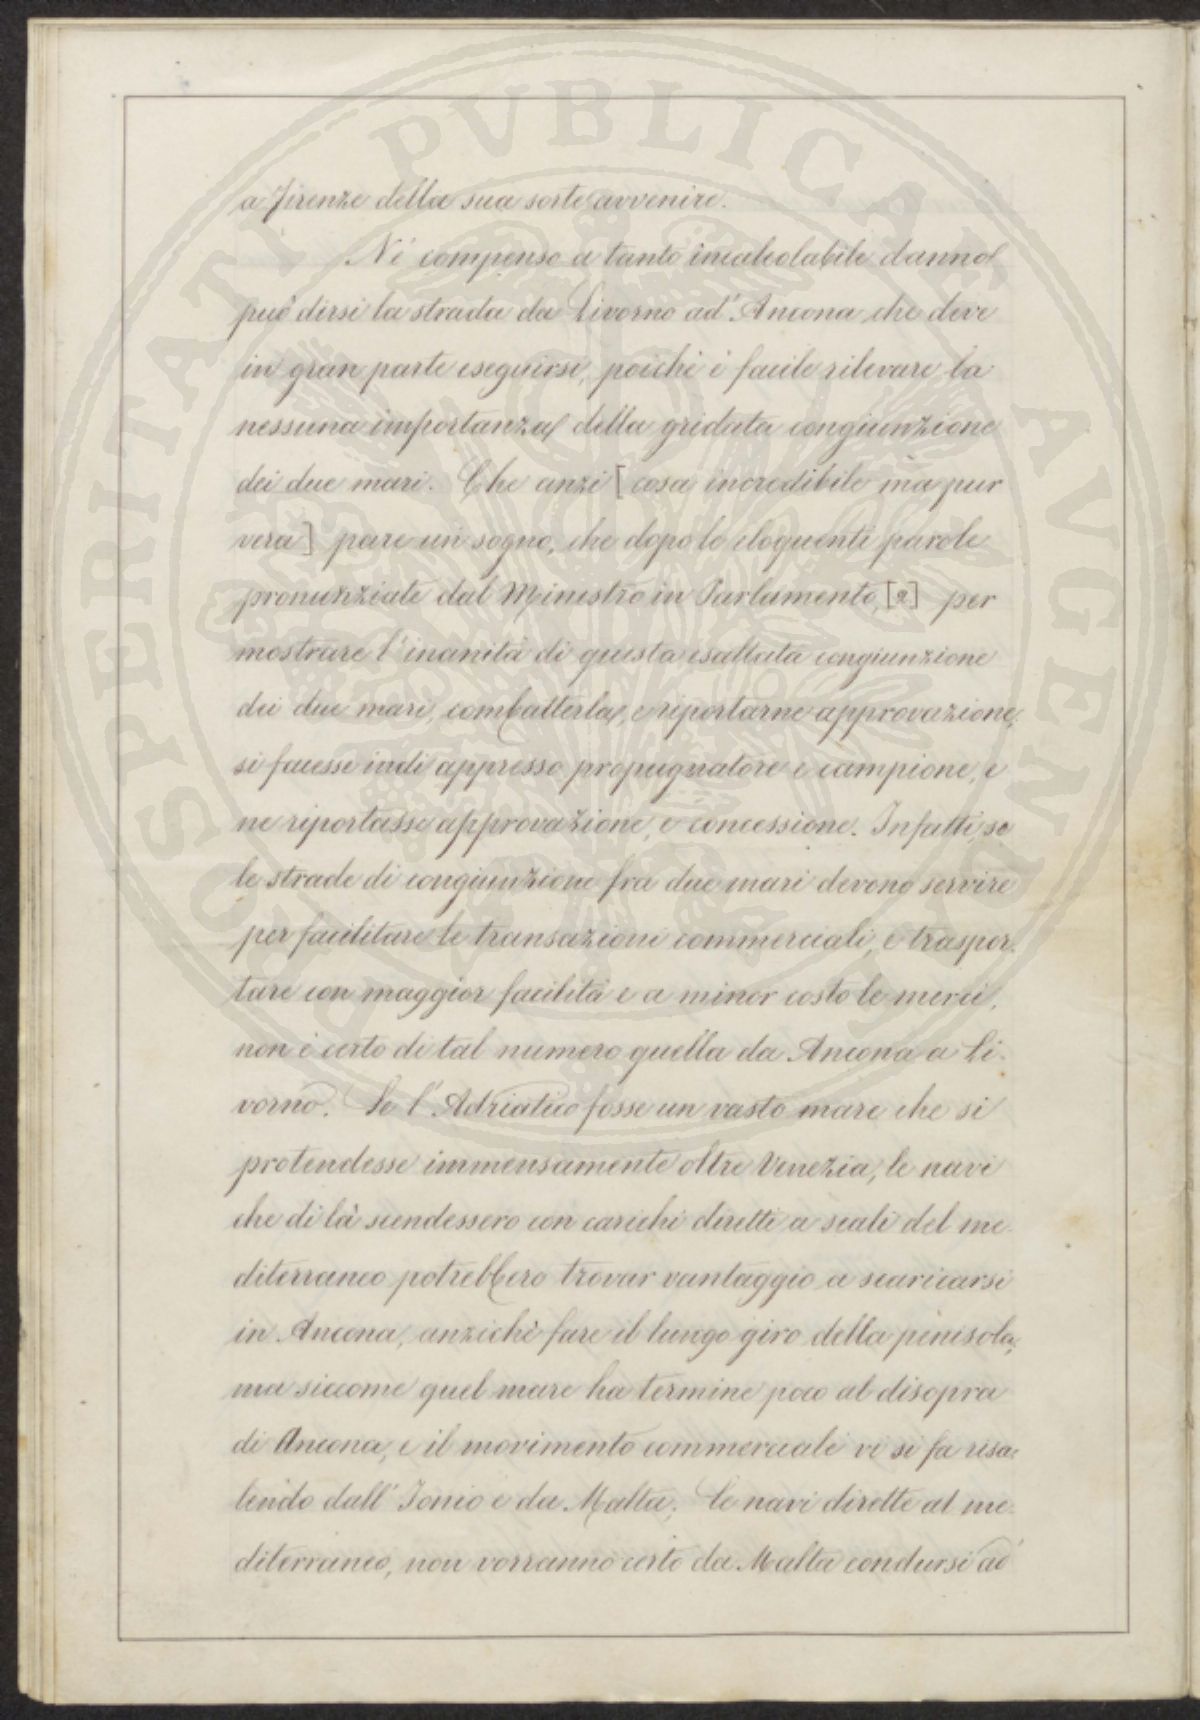 a Firenze della sua sorte avvenire.
Nè compenso a tanto incalcolabile danno
può dirsi la strada da Livorno ad'Ancona che deve
in gran parte eseguirsi, poichè è facile rilevare la
nessuna importanza della gridata congiunzione
dei due mari. Che anzi [cosa incredibile ma pur
vera] pare un sogno, che dopo le eloquenti parole
pronunziate dal Ministro in Parlamento, [2] per
mostrare l'inanità di questa esaltata congiunzione
dei due mari, combatterla, e riportarne approvazione,
si facesse indi appresso propugnatore e campione, e
ne riportasse approvazione, e concessione. Infatti, se
le strade di congiunzione fra due mari devono servire
per facilitare le transazioni commerciali, e traspor-
tare con maggior facilità e a minor costo le merci,
non è certo di tal numero quella da Ancona a Li-
vorno. Se l'Adriatico fosse un vasto mare che si
protendesse immensamente oltre Venezia, le navi
che di là scendessero con carichi diretti a scali del me-
diterraneo potrebbero trovar vantaggio a scaricarsi
in Ancona, anzichè fare il lungo giro della penisola,
ma siccome quel mare ha termine poco al disopra
di Ancona, e il movimento commerciale vi si fa risa-
lendo dall'Ionio e da Malta; le navi dirette al me-
diterraneo, non vorranno certo da Malta condursi ad
PROSPERITATI PVBLICAE AVGENDAE